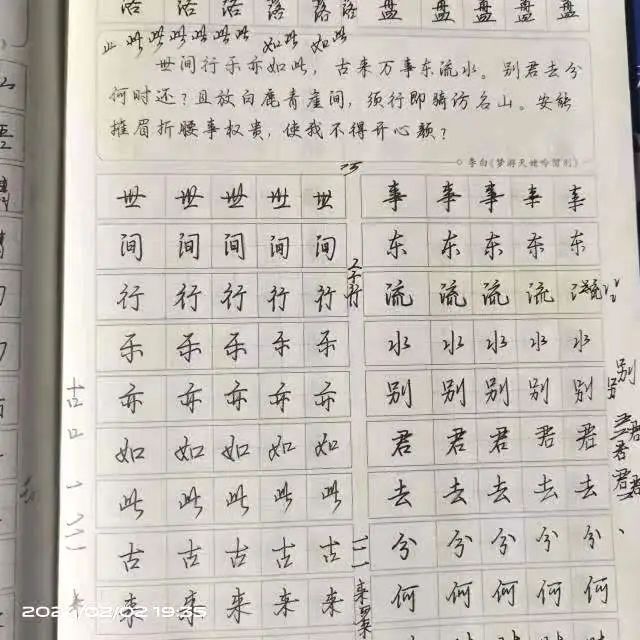 盘 盘 盘 盘 盘
此 此 此 此 此 此 如此 如此
世间行乐亦如此，古来万事东流水。别君去兮
何时还？且放白鹿青崖间，须行即骑访名山。安能
摧眉折腰事权贵，使我不得开心颜？
李白《梦游天姥吟留别》
世 世 世 世 世 事 事 事 事 事
间 间 间 间 间 东 东 东 东 东
行 行 行 行 行 流 流 流 流 流
乐 乐 乐 乐 乐 水 水 水 水 水
亦 亦 亦 亦 亦 别 别 别 别 别
如 如 如 如 如 君 君 君 君 君
此 此 此 此 此 去 去 去 去 去
古 古 古 古 古 兮 兮 兮 兮 兮
来 来 来 来 来 何 何 何 何 何
古
别
2022/02/02 19:35